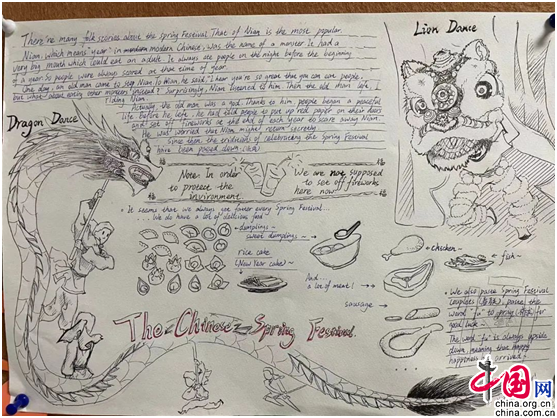 There're many folk stories about the Spring Festival. That of Nian is the most popular.
Nian, which means "year" in modern Chinese, was the name of a monster. It had a
very big mouth which could eat an adult. It always ate people on the night before the beginning
of a year. So people were always scared at that time of year.
One day, an old man came to say Nian. To Nian, he said, "I hear you're so great that you can eat people,
but what about eating other monsters instead?" Surprisingly, Nian listened to him. Then the old man left,
riding Nian.
the old man was a god. Thanks to him, people began a peaceful
life. Before he left, he had told people to put up red paper on their doors
and set off fireworks at the end of each year to scare away Nian.
He was worried that Nian might return secretly.
Since then the tradition of celebrating the Spring Festival
have been passed down.
Dragon Dance
Lion Dance
Note: In order
to protect the
environment
We are not supposed
to set off fireworks
here now
It seems that us always get fatter every Spring Festival...
... We do have a lot of delicious food
dumplings
sweet dumplings
rice cake
(New Year cake)
And...
a lot of meat!
chicken
fish
sausage
We also paste Spring Festival
couplets
word "fu"
good luck
The word "fu" is always upside
down, meaning that
happiness arrived
The Chinese Spring Festival
中国网
china.org.cn
china.com.cn